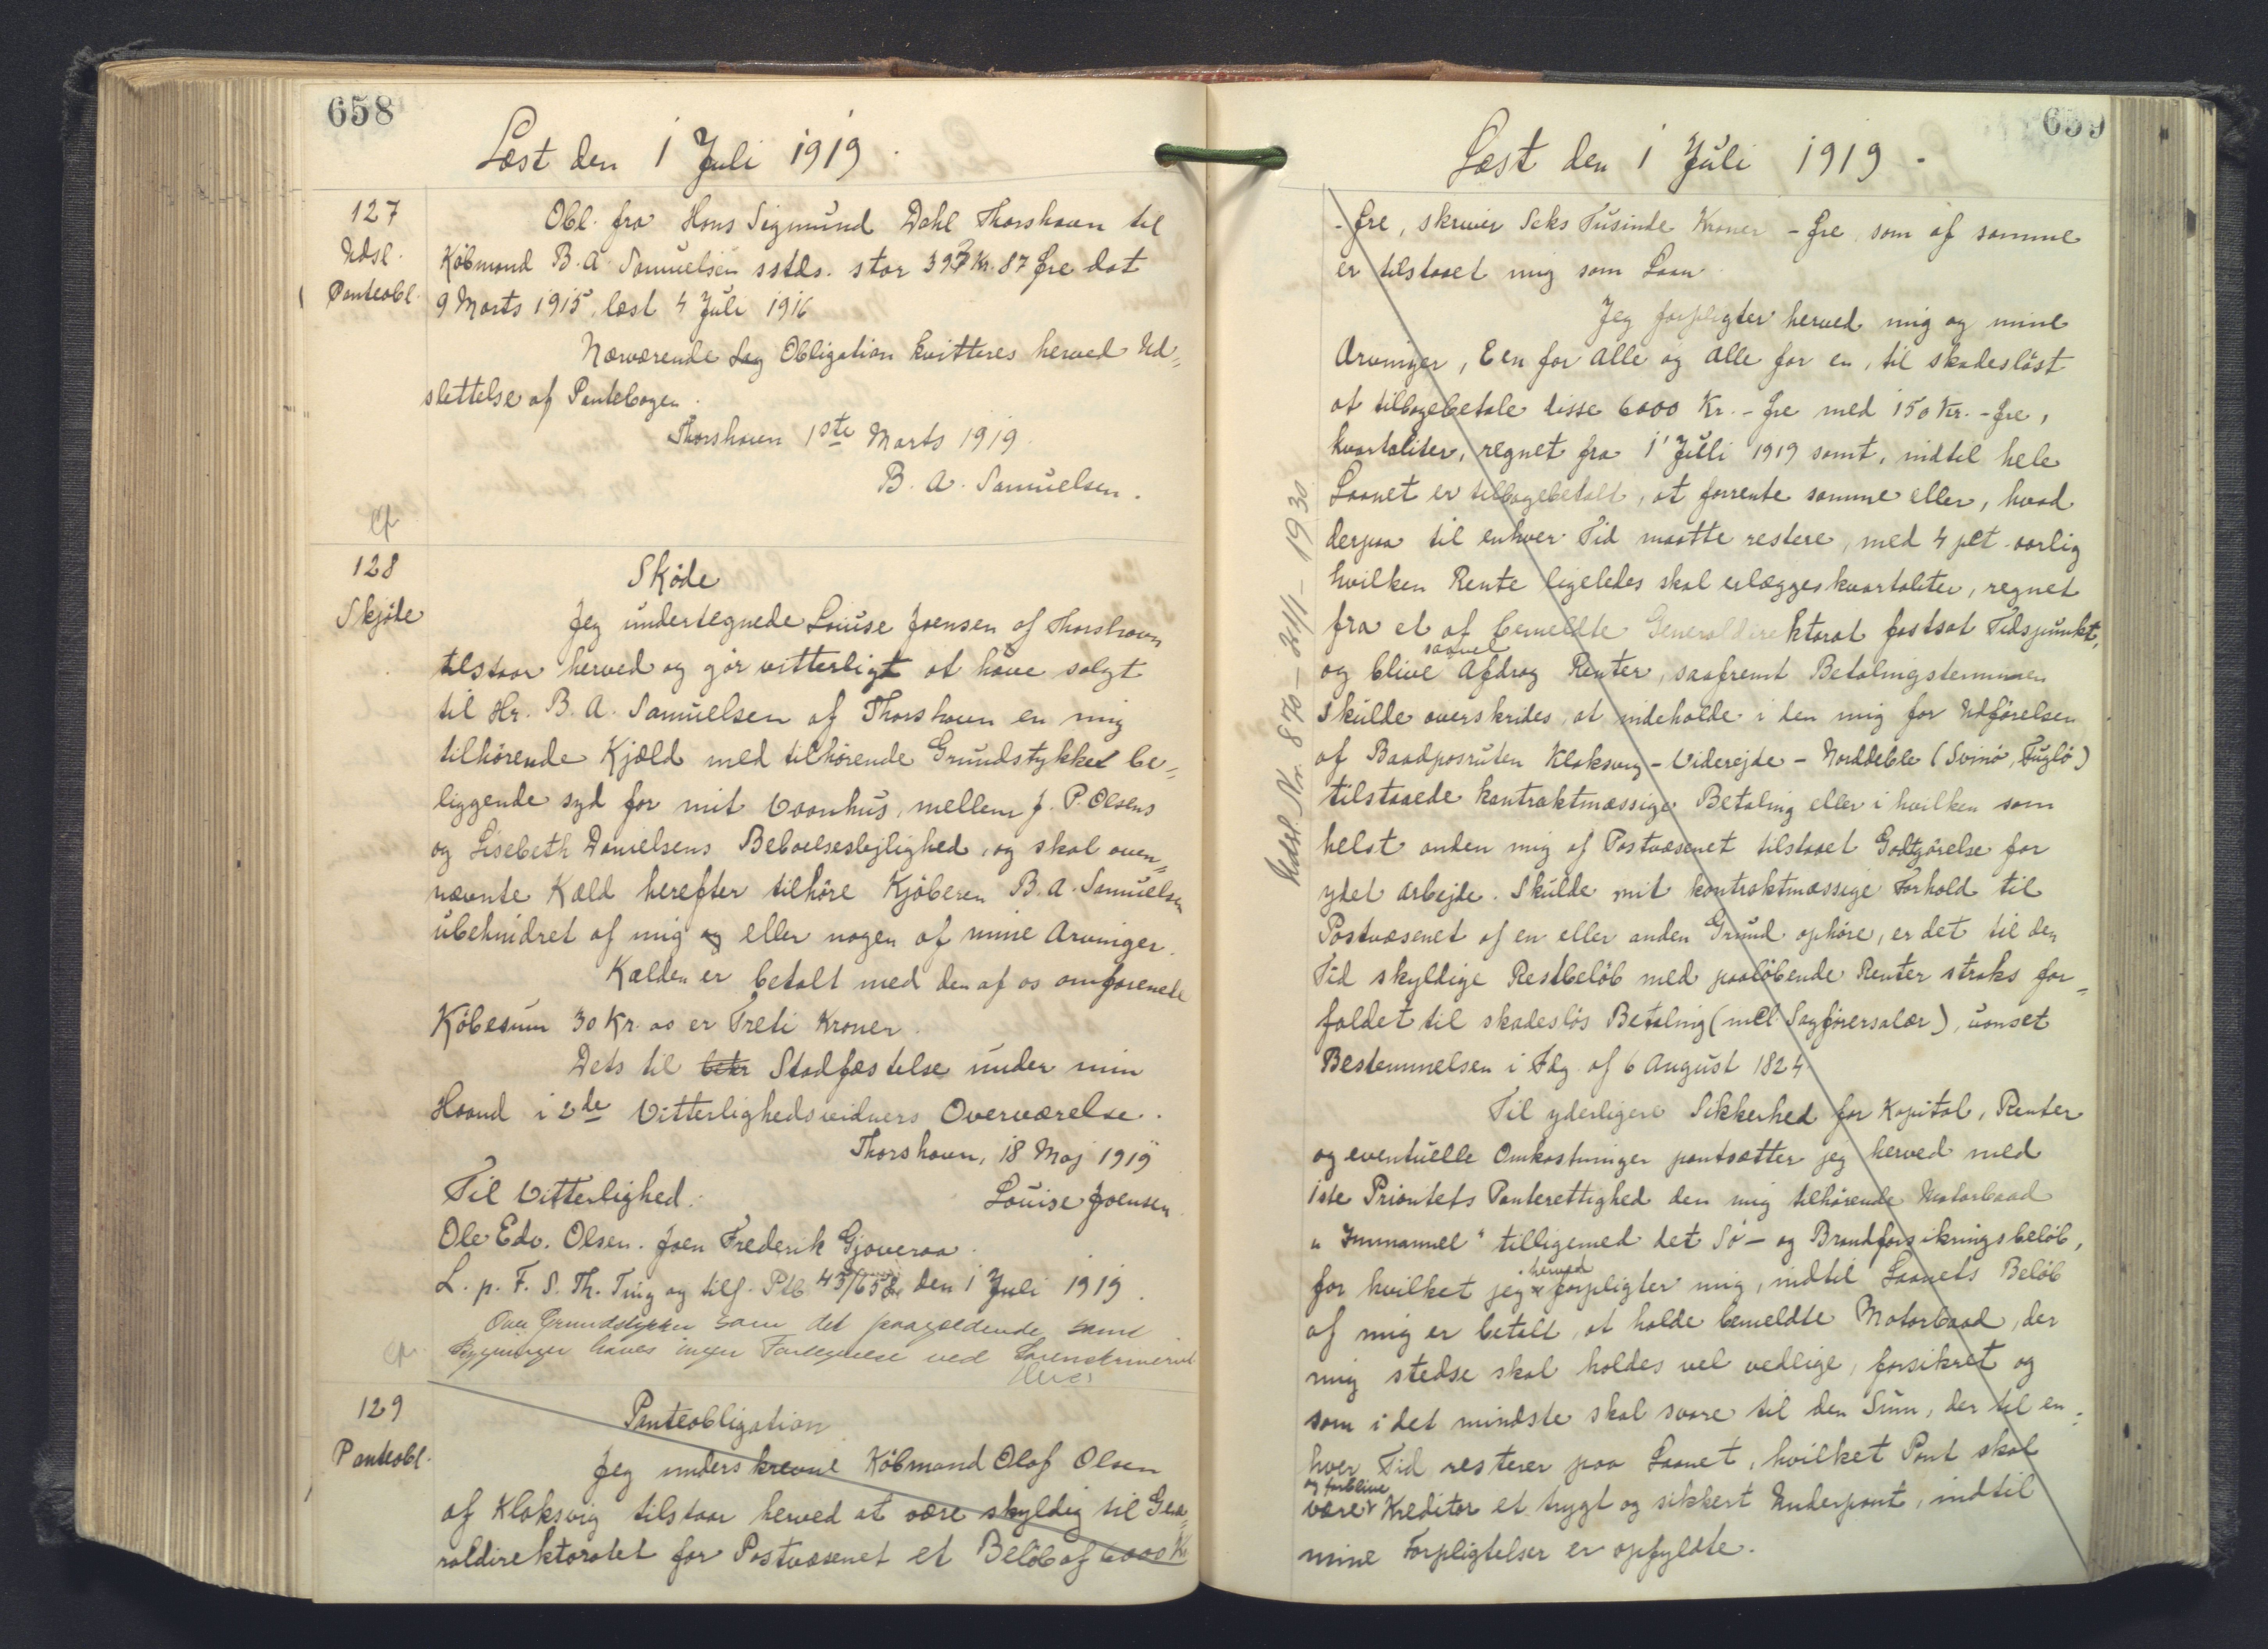 658
Læst den 1 Juli 1919.
127
Udsl.
Panteobl.
Obl. fra Hans Sigmund Dahl Thorshavn til
Købmand B. A. Samuelsen sstds. stor 393 Kr. 87 Øre dat
9 Marts 1915, læst 4 Juli 1916
Nærværende Sag Obligation kvitteres herved Ud=
slettelse af Pantebogen.
Thorshavn 1ste Marts 1919.
B. A. Samuelsen.
cf
128
Skjøte
Skøde
Jeg undertegnede Louise Joensen af Thorshavn
tilstaar herved og gør vitterligt at have solgt
til Hr. B. A. Samuelsen af Thorshavn en mig
tilhørende Kjæld med tilhørende Grundstykket be=
liggende syd for mit Vaanhus, mellem J. P. Olsens
og Lisebeth Danielsens Beboelseslejlighed, og skal oven=
nævnte Kæld herefter tilhøre Kjøberen B. A. Samuelsen
ubehindret af mig og eller nogen af mine Arvinger.
Kælden er betalt med den af os omforenede
Købesum 30 Kr. as er Treti Kroner.
Dets til bekr Stadfæstelse under min
Haand i 2de Vitterlighedsvidners Overværelse.
Thorshavn, 18 Maj 1919
Til Vitterlighed: Louise Joensen.
Ole Edv. Olsen. Joen Frederik Gjoveraa.
L. p. F. S. Th. Ting og tilf. Ptb. 43/658 den 1 Juli 1919.
Over Grundstykker som det paagældende samt
Bygninger haves ingen Forlegnelse ved Sorenskriveriet
cfr.
129
Panteobl.
Panteobligation
Jeg underskrevne Købmand Olaf Olsen
af Klaksvig tilstaar herved at være skyldig til Gene=
raldirektoratet for Postvæsenet et Beløb af 6000 Kr
659
Læst den 1 Juli 1919 -
- Øre, skriver Seks Tusinde Kroner - Øre, som af samme
er tilstaaet mig som Laan.
Jeg forpligter herved mig og mine
Arvinger, Een for Alle og Alle for en, til skadesløst
at tilbagebetale disse 6000 Kr. - Øre med 150 Kr. - Øre,
kvartaliter, regnet fra 1' Juli 1919 samt, indtil hele
Laanet er tilbagebetalt, at forrente samme eller, hvad
derpaa til enhver Tid maatte restere, med 4 pct aarlig
hvilken Rente ligeledes skal erlægges kvartaliter, regnet
fra et af bemeldte Generaldirektorat fastsat Tidspunkt,
saavel
og blive Afdrag Renter, saafremt Betalingsterminen
skulde overskrides, at indeholde i den mig for Udførelsen
af Baadposruten Klaksvig - Viderejde - Norddeble (Svinø, Fuglø)
tilstaaede kontraktmæssige Betaling eller i hvilken som
helst anden mig af Postvæsenet tilstaaet Godtgørelse for
ydet Arbejde. Skulde mit kontraktmæssige Forhold til
Postvæsenet af en eller anden Grund ophøre, er det til den
Tid skyldige Restbeløb med paaløbende Renter straks for=
faldet til skadesløs Betaling (incl. Sagførersalær), uanset
Bestemmelsen i Fdg. af 6 August 1824.
Til yderligere Sikkerhed for Kapital, Renter
og eventuelle Omkostninger pantsætter jeg herved med
1ste Prioritets Panterettighed den mig tilhørende Motorbaad
"Immanuel" tilligemed det Sø- og Brandforsikringsbeløb,
herved
for hvilket jeg forpligter mig, indtil Laanets Beløb
af mig er betalt, at holde bemeldte Motorbaad, der
mig stedse skal holdes vel vedlige, forsikret og
som i det mindste skal svare til den Sum, der til en=
hver Tid resterer paa Laanet, hvilket Pant skal
og forblive
være Kreditor et trygt og sikkert Underpant, indtil
mine Forpligtelser er opfyldte.
Udsl. Nr. 870 - 21/1 - 1930.